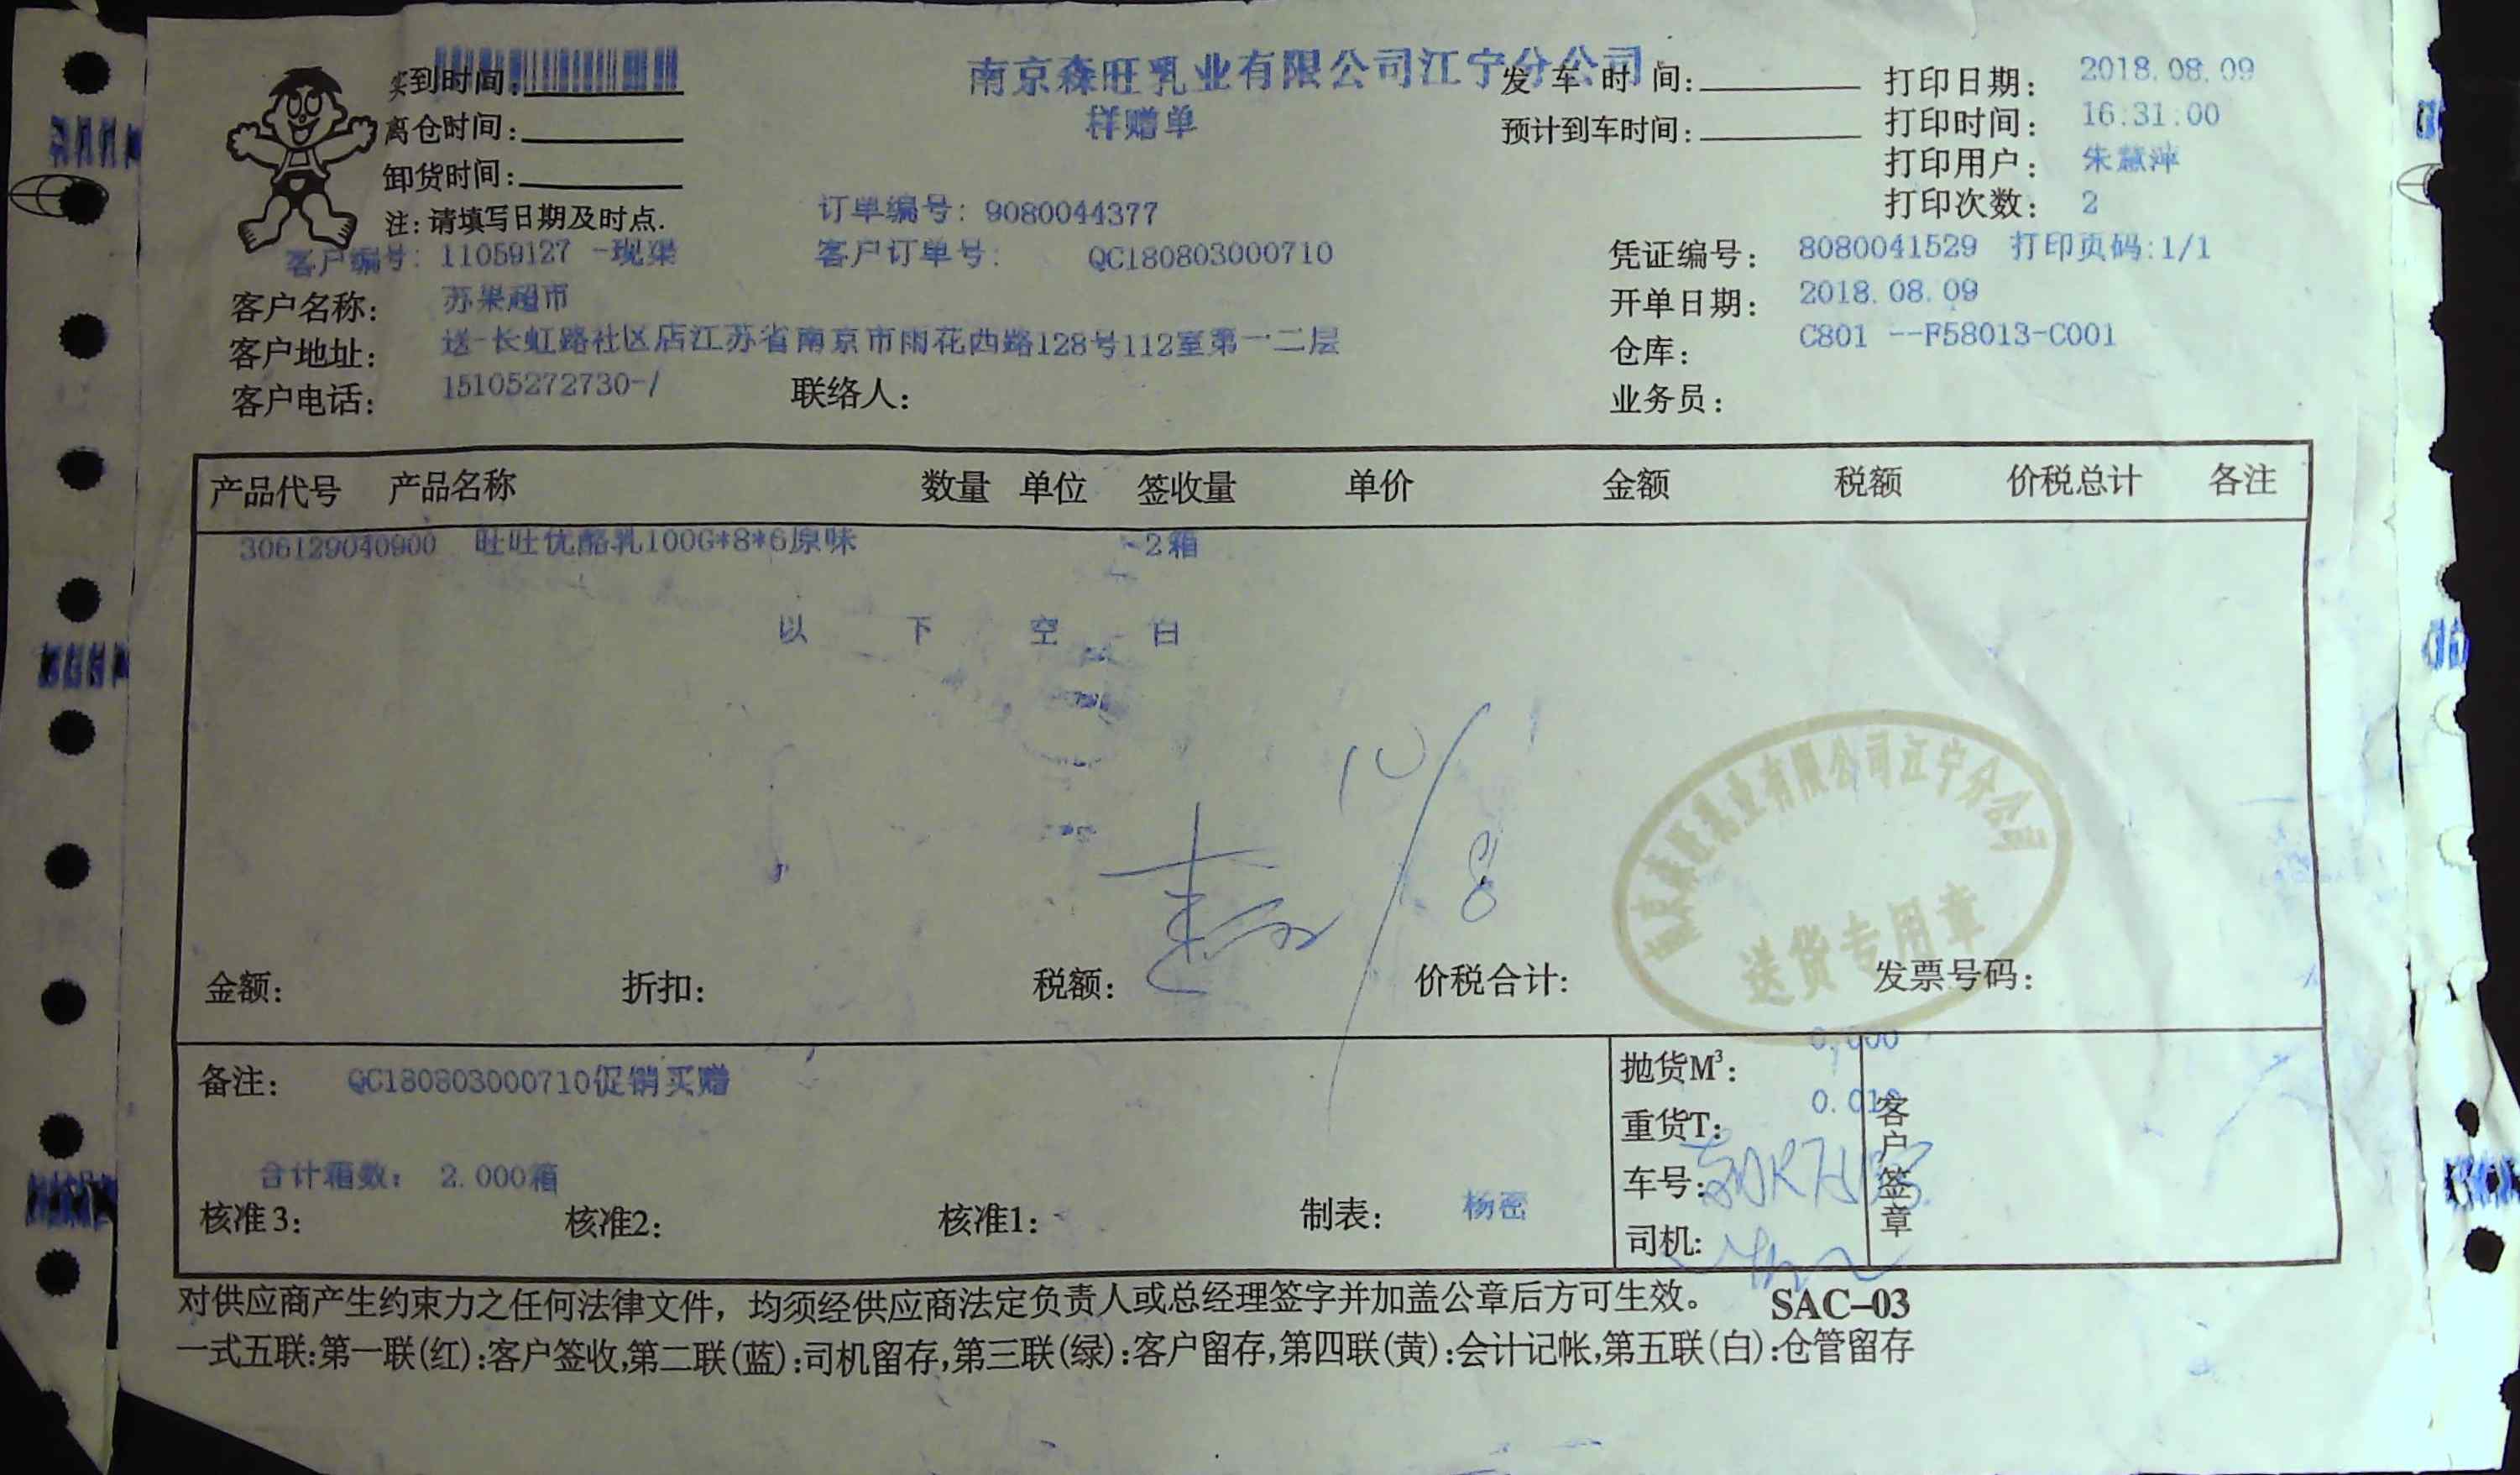 南京森旺乳业有限公司江宁分公司
样赠单
实到时间:
离仓时间:
卸货时间:
注:请填写日期及时点.
发车时间:
预计到车时间:
打印日期: 2018.08.09
打印时间: 16:31:00
打印用户: 朱慧萍
打印次数: 2
订单编号: 9080044377
客户编号: 11059127 -现渠
客户订单号: QC180803000710
凭证编号: 8080041529 打印页码:1/1
客户名称: 苏果超市
开单日期: 2018.08.09
客户地址: 送-长虹路社区店江苏省南京市雨花西路128号112室第一二层
仓库: C801 --F58013-C001
客户电话: 15105272730-/
联络人:
业务员:
产品代号 产品名称 数量 单位 签收量 单价 金额 税额 价税总计 各注
306129040900 旺旺优酪乳100G*8*6原味 2箱
以 下 空 白
10/8
南京森旺乳业有限公司江宁分公司
送货专用章
金额: 折扣: 税额: 价税合计: 发票号码:
备注: QC180803000710促销买赠
合计箱数: 2.000箱
核准3: 核准2: 核准1: 制表: 杨密
抛货M³: 0.000
重货T:
车号:
司机:
客户签章
对供应商产生约束力之任何法律文件，均须经供应商法定负责人或总经理签字并加盖公章后方可生效。 SAC-03
一式五联:第一联(红):客户签收,第二联(蓝):司机留存,第三联(绿):客户留存,第四联(黄):会计记帐,第五联(白):仓管留存